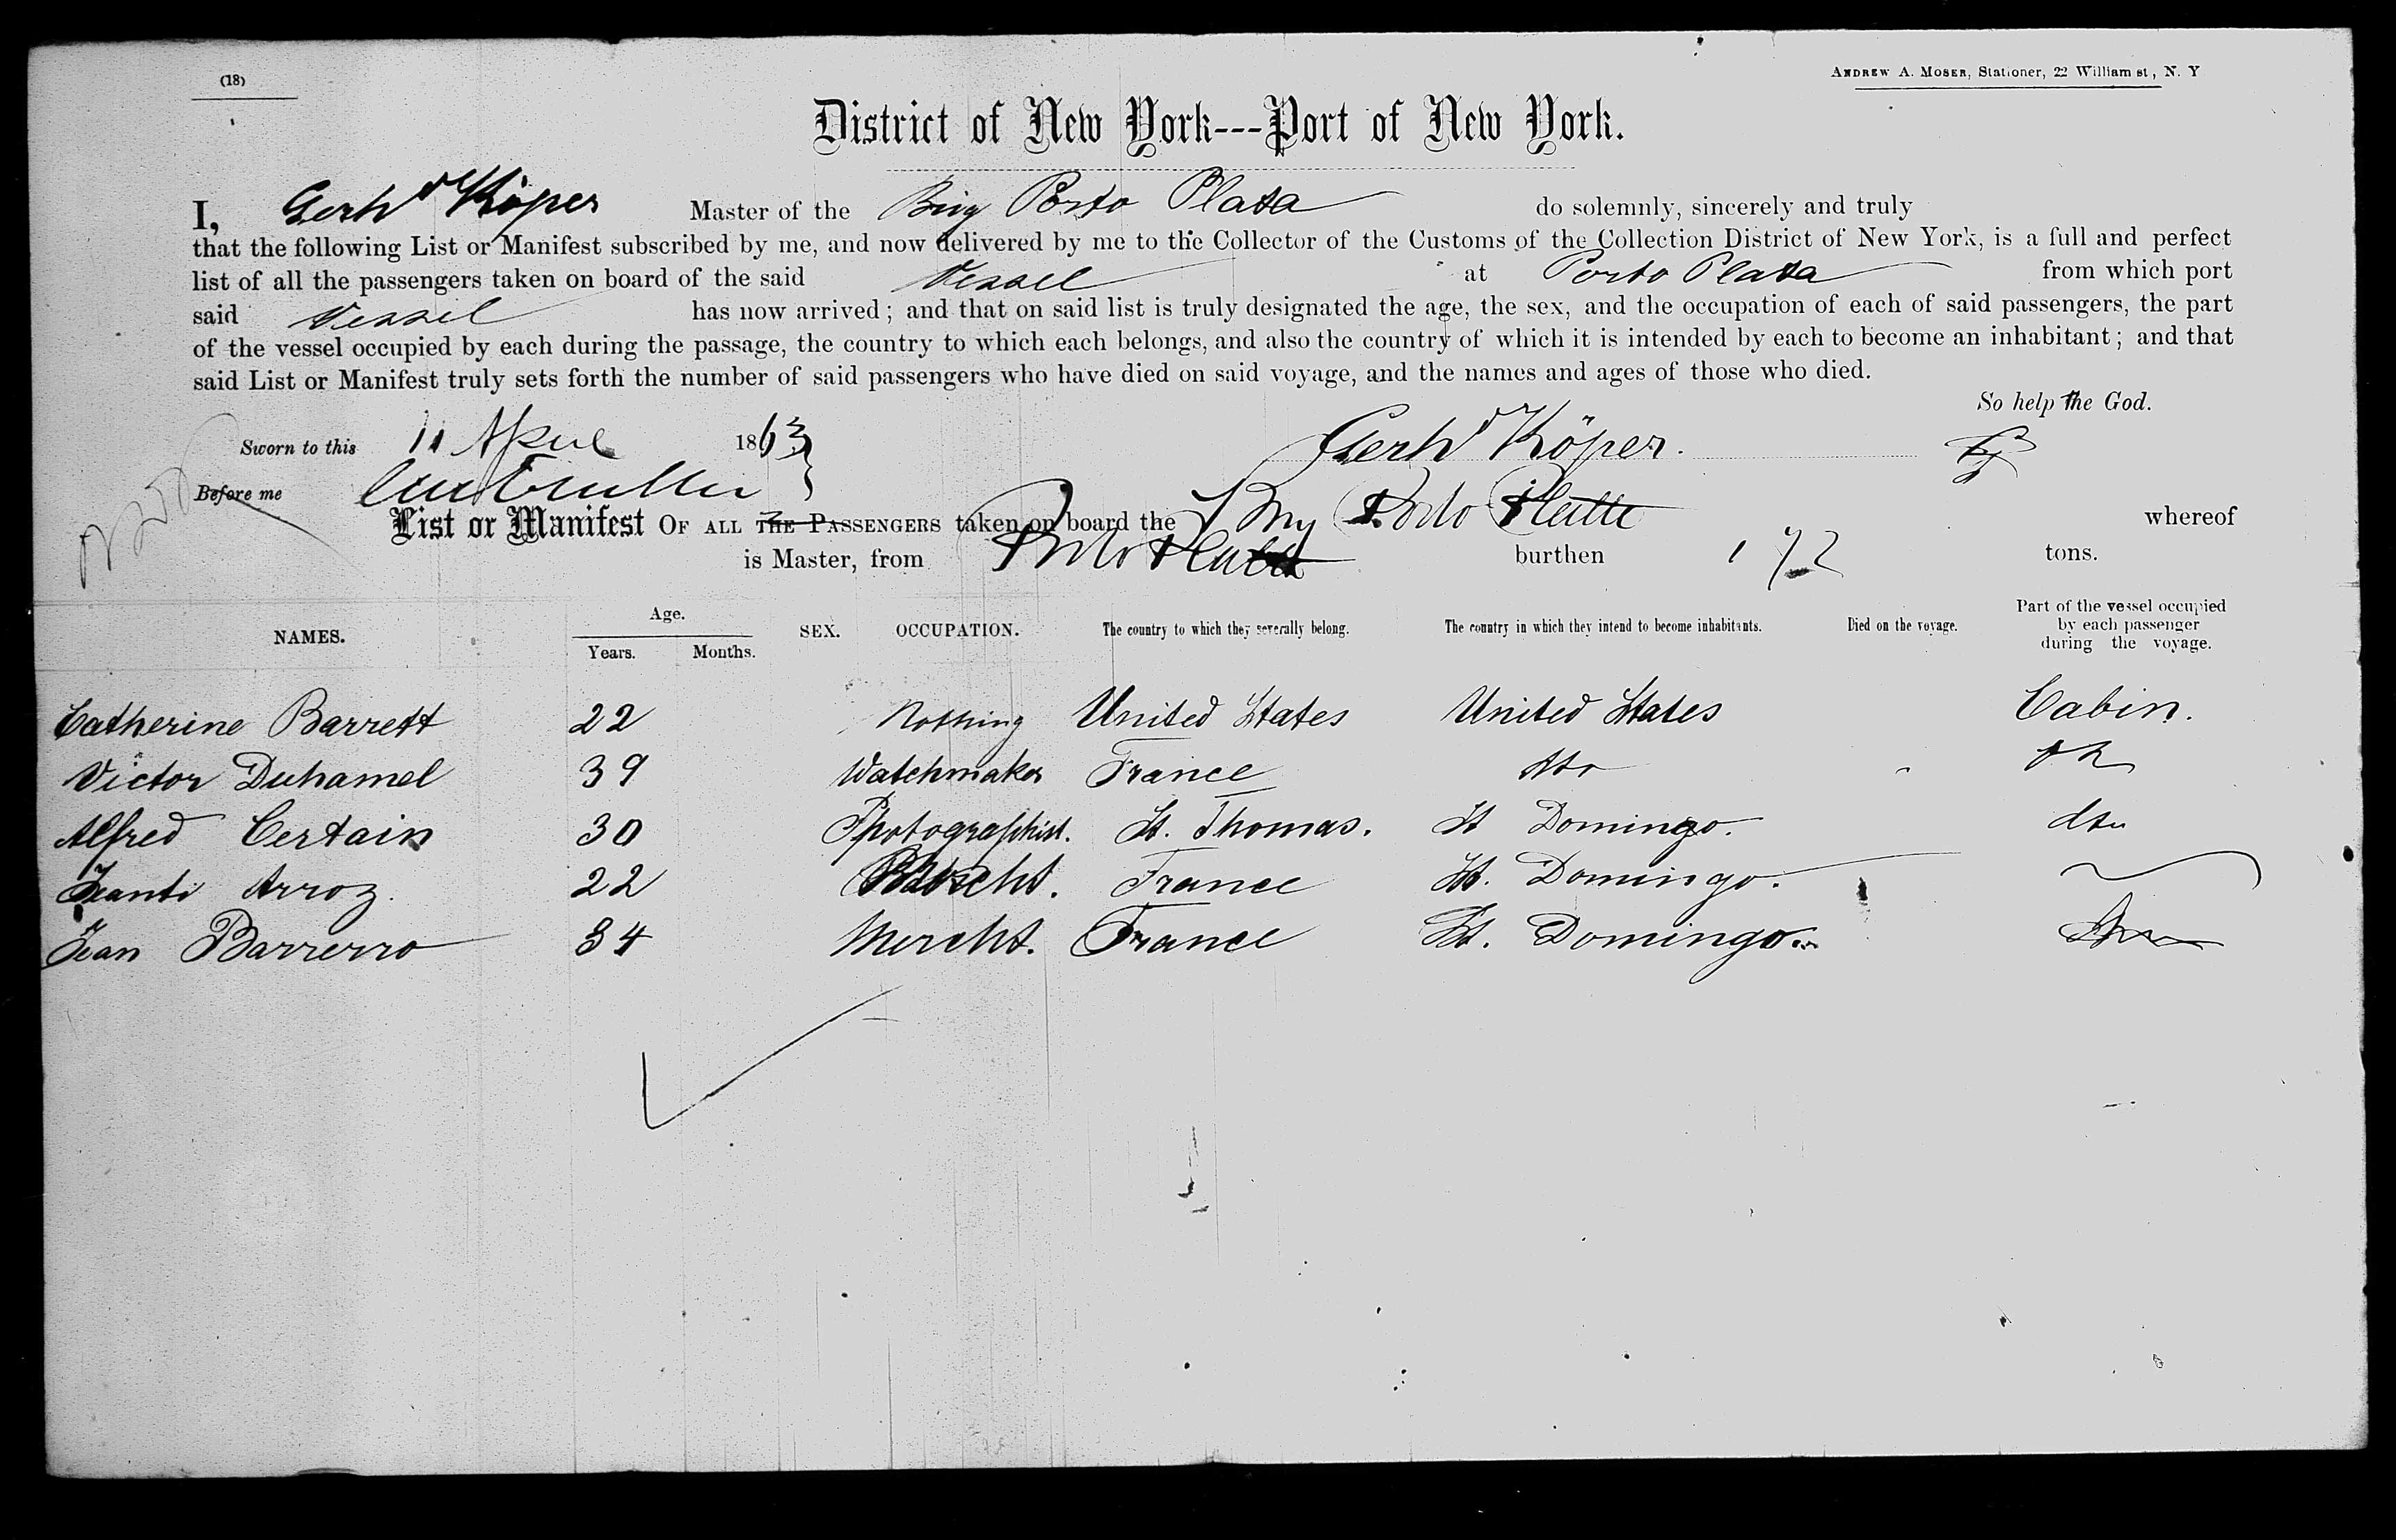 (18)
ANDREW A. MOSER, Stationer, 22 William st, N. Y
District of New York---Port of New York.
I, Gerhd Köper Master of the Brig Porto Plata do solemnly, sincerely and truly
that the following List or Manifest subscribed by me, and now delivered by me to the Collector of the Customs of the Collection District of New York, is a full and perfect
list of all the passengers taken on board of the said Vessel at Porto Plata from which port
said Vessel has now arrived; and that on said list is truly designated the age, the sex, and the occupation of each of said passengers, the part
of the vessel occupied by each during the passage, the country to which each belongs, and also the country of which it is intended by each to become an inhabitant; and that
said List or Manifest truly sets forth the number of said passengers who have died on said voyage, and the names and ages of those who died.
So help the God.
Sworn to this 11 April 1863 Gerhd Köper.
Before me
List or Manifest OF ALL THE PASSENGERS taken on board the Brig Porto Platte whereof
is Master, from Porto Platte burthen 172 tons.
NAMES. Age. Years. Months. SEX. OCCUPATION. The country to which they severally belong. The country in which they intend to become inhabitants. Died on the voyage. Part of the vessel occupied by each passenger during the voyage.
Catherine Barrett 22 Nothing United States United States Cabin.
Victor Duhamel 39 Watchmaker France dto
Alfred Certain 30 Photographist. St. Thomas. St Domingo. dto
Arroz. 22 France St. Domingo.
Jean Barrerro 34 Mercht. France St. Domingo.